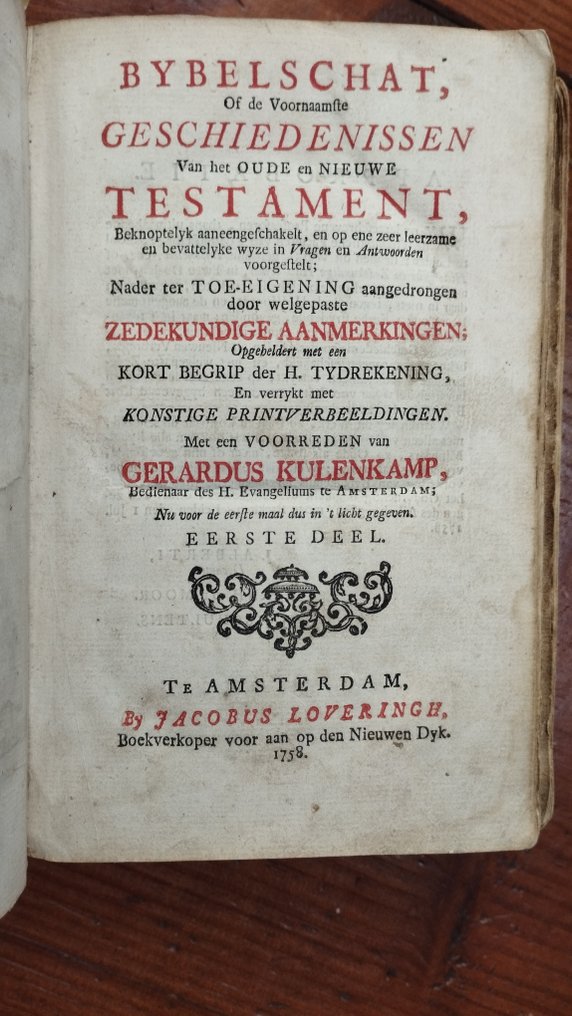 BYBELSCHAT,
Of de Voornaamſte
GESCHIEDENISSEN
Van het OUDE en NIEUWE
TESTAMENT,
Beknoptelyk aaneengeſchakelt, en op ene zeer leerzame
en bevattelyke wyze in Vragen en Antwoorden
voorgeſtelt;
Nader ter TOE-EIGENING aangedrongen
door welgepaste
ZEDEKUNDIGE AANMERKINGEN;
Opgeheldert met een
KORT BEGRIP der H. TYDREKENING,
En verrykt met
KONSTIGE PRINTVERBEELDINGEN.
Met een VOORREDEN van
GERARDUS KULENKAMP,
Bedienaar des H. Evangeliums te AMSTERDAM;
Nu voor de eerſte maal dus in 't licht gegeven.
EERSTE DEEL.
TE AMSTERDAM,
By JACOBUS LOVERINGH,
Boekverkoper voor aan op den Nieuwen Dyk.
1758.